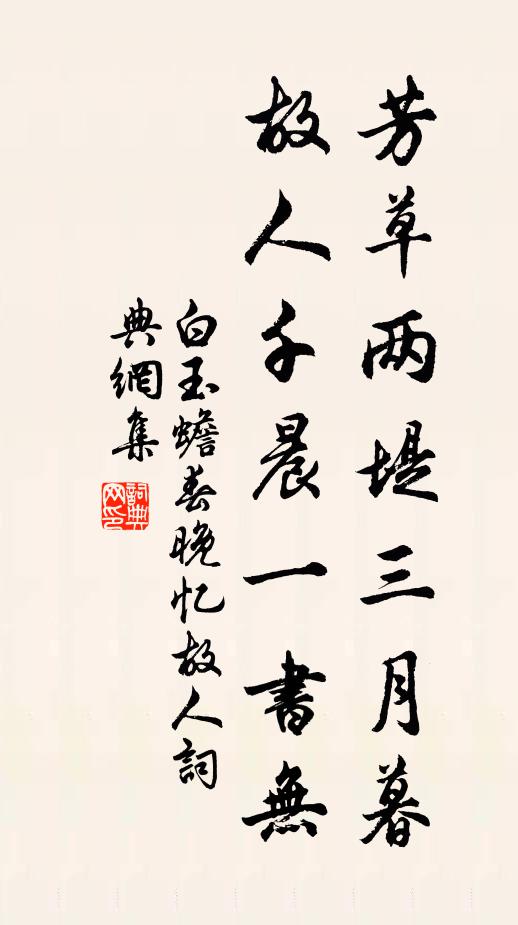 芳草两堤三月暮
故人千晨一書無
白玉蟾春晚忆故人詞
典網集
詞典
网印